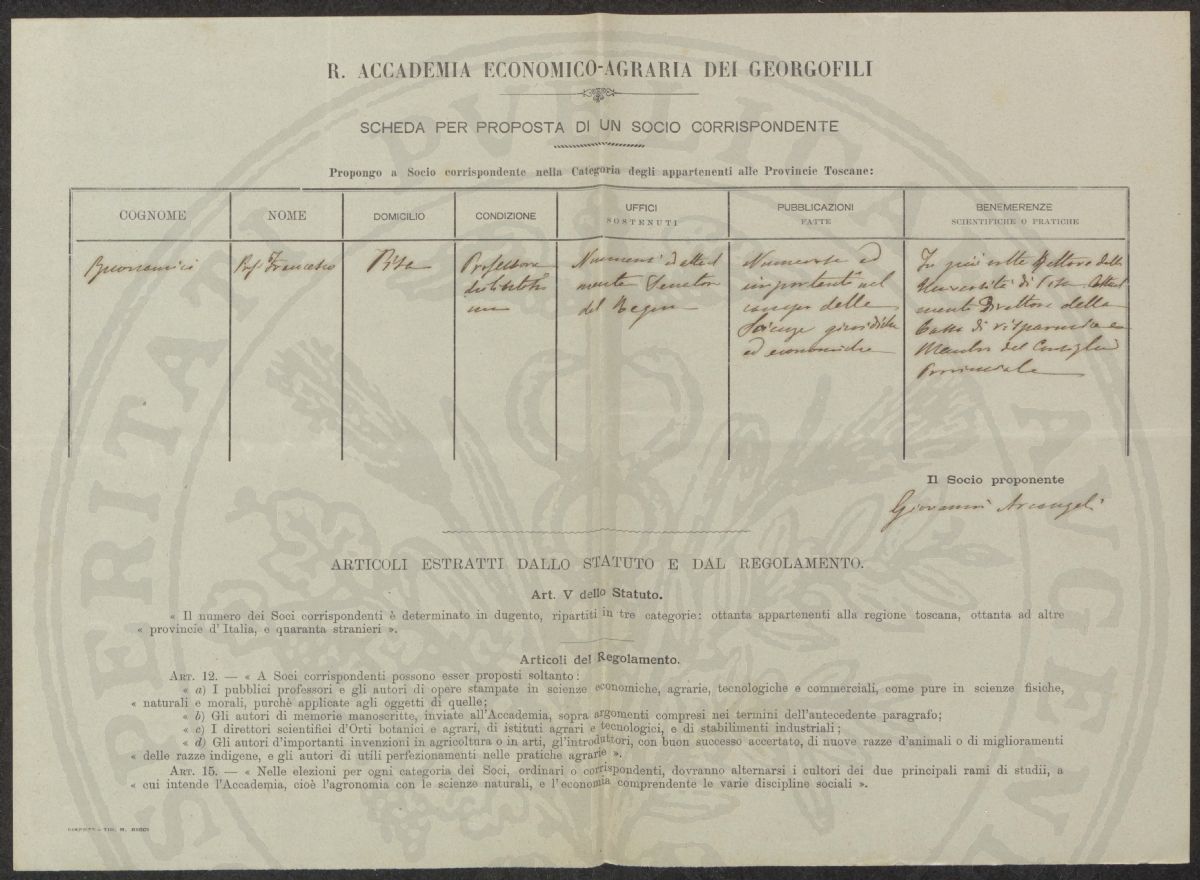 R. ACCADEMIA ECONOMICO-AGRARIA DEI GEORGOFILI
SCHEDA PER PROPOSTA DI UN SOCIO CORRISPONDENTE
Propongo a Socio corrispondente nella Categoria degli appartenenti alle Provincie Toscane:
COGNOME
NOME
DOMICILIO
CONDIZIONE
UFFICI
SOSTENUTI
PUBBLICAZIONI
FATTE
BENEMERENZE
SCIENTIFICHE O PRATICHE
Buonamici
Prof. Francesco
Pisa
Professore
Numerosi ed attual
mente Senatore
del Regno
Numerose ed
importanti nel
campo delle
Scienze giuridiche
ed economiche
Fu più volte Rettore della
Università di Pisa. Attual
mente Direttore della
Cassa di risparmio e
Membro del Consiglio
Provinciale
Il Socio proponente
Giovanni Arcangeli
ARTICOLI ESTRATTI DALLO STATUTO E DAL REGOLAMENTO.
Art. V dello Statuto.
« Il numero dei Soci corrispondenti è determinato in dugento, ripartiti in tre categorie: ottanta appartenenti alla regione toscana, ottanta ad altre
« provincie d'Italia, e quaranta stranieri ».
Articoli del Regolamento.
ART. 12. — « A Soci corrispondenti possono esser proposti soltanto:
« a) I pubblici professori e gli autori di opere stampate in scienze economiche, agrarie, tecnologiche e commerciali, come pure in scienze fisiche,
« naturali e morali, purchè applicate agli oggetti di quelle;
« b) Gli autori di memorie manoscritte, inviate all'Accademia, sopra argomenti compresi nei termini dell'antecedente paragrafo;
« c) I direttori scientifici d'Orti botanici e agrari, di istituti agrari e tecnologici, e di stabilimenti industriali;
« d) Gli autori d'importanti invenzioni in agricoltura o in arti, gl'introduttori, con buon successo accertato, di nuove razze d'animali o di miglioramenti
« delle razze indigene, e gli autori di utili perfezionamenti nelle pratiche agrarie ».
ART. 15. — « Nelle elezioni per ogni categoria dei Soci, ordinari o corrispondenti, dovranno alternarsi i cultori dei due principali rami di studii, a
« cui intende l'Accademia, cioè l'agronomia con le scienze naturali, e l'economia comprendente le varie discipline sociali ».
TIP. M. RICCI